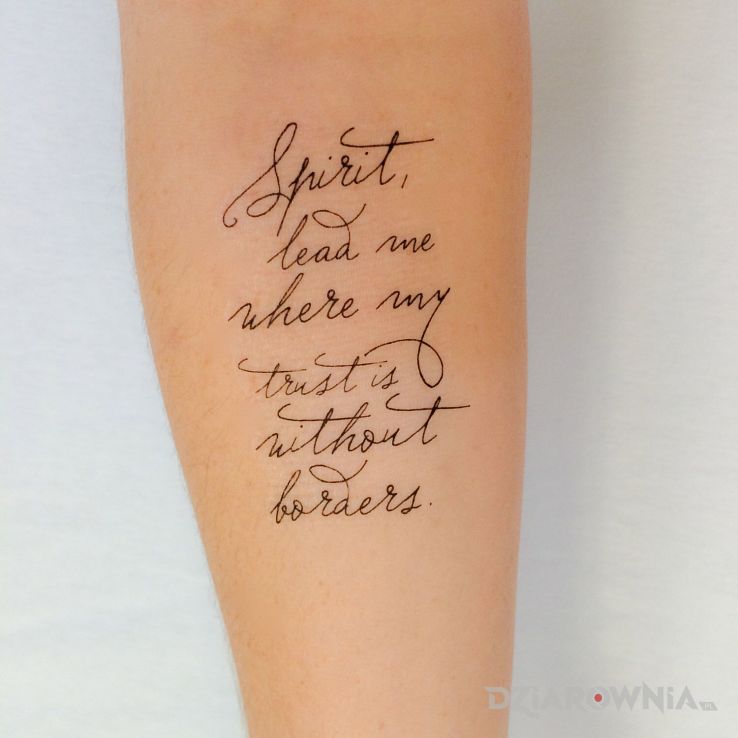 Spirit,
lead me
where my
trust is
without
borders.
DZIAROWNIA.PL